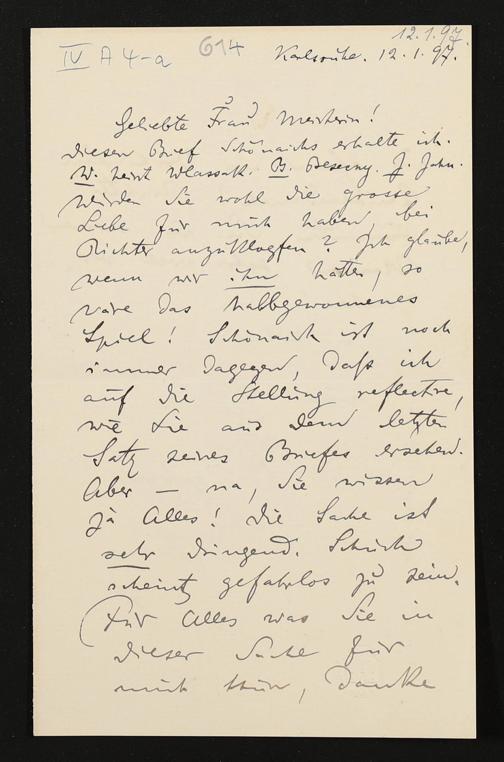 12.1.97.
IV A 4-a
614
Karlsruhe. 12.1.97.
Geliebte Frau Meisterin!
Diesen Brief Schönaichs erhalte ich.
W. heisst Wlassak. B. Bezecny. J. Jahn.
Würden Sie wohl die grosse
Liebe für mich haben, bei
Richter anzuklopfen? Ich glaube,
wenn wir ihn hätten, so
wäre das halbgewonnenes
Spiel! Schönaich ist noch
immer dagegen, daß ich
auf die Stellung reflective,
wie Sie aus dem letzten
Satz seines Briefes ersehen.
Aber — na, Sie wissen
ja Alles! Die Sache ist
sehr dringend. Schuch
scheint gefahrlos zu sein.
Für Alles was Sie in
dieser Sache für
mich thun, danke